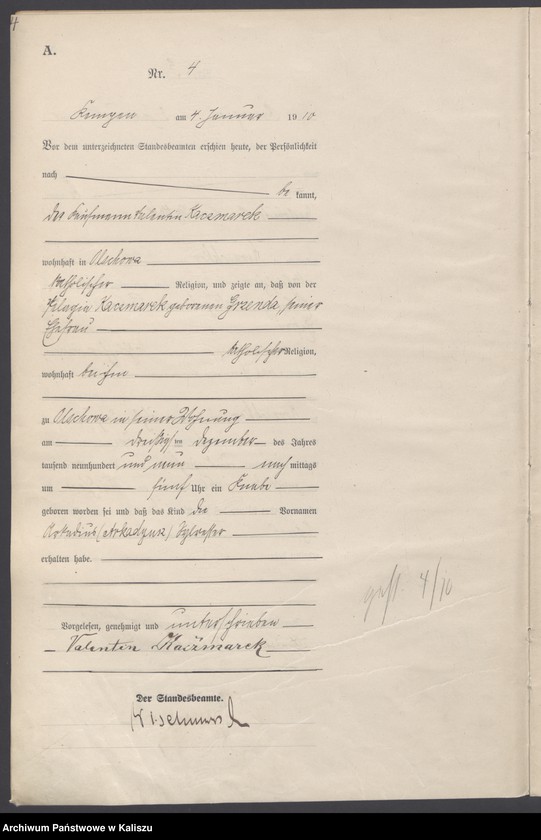 4
A.
Nr. 4
Kempen am 4. Januar 1910
Vor dem unterzeichneten Standesbeamten erschien heute, der Persönlichkeit
nach
be kannt,
der Kaufmann Valentin Kaczmarek
wohnhaft in Olschowa
katholischer Religion, und zeigte an, daß von der
Pelagia Kaczmarek geborenen Grzenda, seiner
Ehefrau
katholischer Religion,
wohnhaft bei ihm
zu Olschowa in seiner Wohnung
am Dezember des Jahres
tausend neunhundert und neun nach mittags
um fünf Uhr ein Knabe
geboren worden sei und daß das Kind die Vornamen
Arkadius (Arkadyusz) Sylvester
erhalten habe.
Vorgelesen, genehmigt und unterschrieben
Valenten Kaczmarek
Der Standesbeamte.
4/10
Archiwum Państwowe w Kaliszu